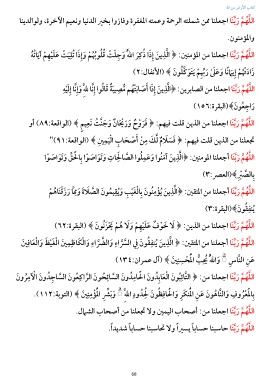 اللَّهُمَّ رَبَّنَا اجعلنا ممن شملته الرحمة وعمته المغفرة وفازوا بخير الدنيا ونعيم الآخرة، ولوالدينا
والمؤمنون.
اللَّهُمَّ رَبَّنَا اجعلنا من المؤمنين: ﴿ الَّذِينَ إِذَا ذُكِرَ اللَّهُ وَجِلَتْ قُلُوبُهُمْ وَإِذَا تُلِيَتْ عَلَيْهِمْ آيَاتُهُ
زَادَتْهُمْ إِيمَانًا وَعَلَىٰ رَبِّهِمْ يَتَوَكَّلُونَ ﴾ (الأنفال:٢)
اللَّهُمَّ رَبَّنَا اجعلنا من الصابرين: ﴿الَّذِينَ إِذَا أَصَابَتْهُم مُّصِيبَةٌ قَالُوا إِنَّا لِلَّهِ وَإِنَّا إِلَيْهِ
رَاجِعُونَ﴾(البقرة:١٥٦)
اللَّهُمَّ رَبَّنَا اجعلنا من الذين قلت فيهم: ﴿ فَرَوْحٌ وَرَيْحَانٌ وَجَنَّتُ نَعِيمٍ ﴾ (الواقعة:٨٩) أو
تجعلنا من الذين قلت فيهم: ﴿ فَسَلَامٌ لَّكَ مِنْ أَصْحَابِ الْيَمِينِ ﴾ (الواقعة:٩١)"
اللَّهُمَّ رَبَّنَا اجعلنا المؤمنين: ﴿الَّذِينَ آمَنُوا وَعَمِلُوا الصَّالِحَاتِ وَتَوَاصَوْا بِالْحَقِّ وَتَوَاصَوْا
بِالصَّبْرِ﴾(العصر:٣)
اللَّهُمَّ رَبَّنَا اجعلنا من المتقين: ﴿الَّذِينَ يُؤْمِنُونَ بِالْغَيْبِ وَيُقِيمُونَ الصَّلَاةَ وَمِمَّا رَزَقْنَاهُمْ
يُنفِقُونَ﴾(البقرة:٣)
اللَّهُمَّ رَبَّنَا اجعلنا من الذين: ﴿ لَا خَوْفٌ عَلَيْهِمْ وَلَا هُمْ يَحْزَنُونَ ﴾ (البقرة:٦٢)
اللَّهُمَّ رَبَّنَا اجعلنا من المتقين: ﴿ الَّذِينَ يُنفِقُونَ فِي السَّرَّاءِ وَالضَّرَّاءِ وَالْكَاظِمِينَ الْغَيْظَ وَالْعَافِينَ
عَنِ النَّاسِ ۗ وَاللَّهُ يُحِبُّ الْمُحْسِنِينَ ﴾ (آل عمران:١٣٤)
اللَّهُمَّ رَبَّنَا اجعلنا من: ﴿ التَّائِبُونَ الْعَابِدُونَ الْحَامِدُونَ السَّائِحُونَ الرَّاكِعُونَ السَّاجِدُونَ الْآمِرُونَ
بِالْمَعْرُوفِ وَالنَّاهُونَ عَنِ الْمُنكَرِ وَالْحَافِظُونَ لِحُدُودِ اللَّهِ ۗ وَبَشِّرِ الْمُؤْمِنِينَ ﴾ (التوبة:١١٢).
اللَّهُمَّ رَبَّنَا اجعلنا من: أصحاب اليمين ولا تجعلنا من أصحاب الشمال.
اللَّهُمَّ رَبَّنَا حاسبنا حساباً يسيراً ولا تحاسبنا حساباً شديداً.